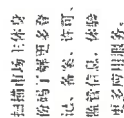 扫描市场主体身
份码了解更多登
记、备案、许可、
监管信息，体验
更多应用服务。